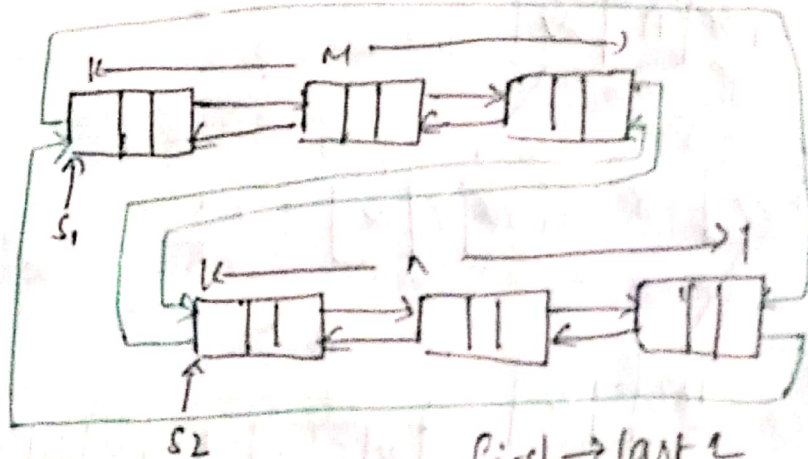 M
S1
n
S2
first → last 2